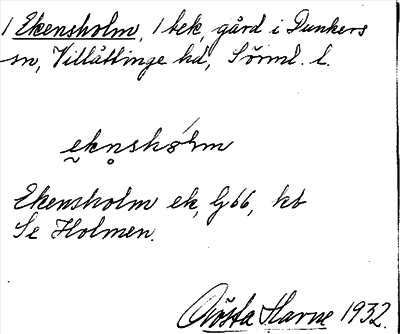 1 Ekensholm, 1 bek, gård i Dunkers
sn, Villåttinge hd, Sörml. l.
ekn̥sholm
Ekensholm ek, G66, kb
Se Holmen.
Gösta Harne 1932.